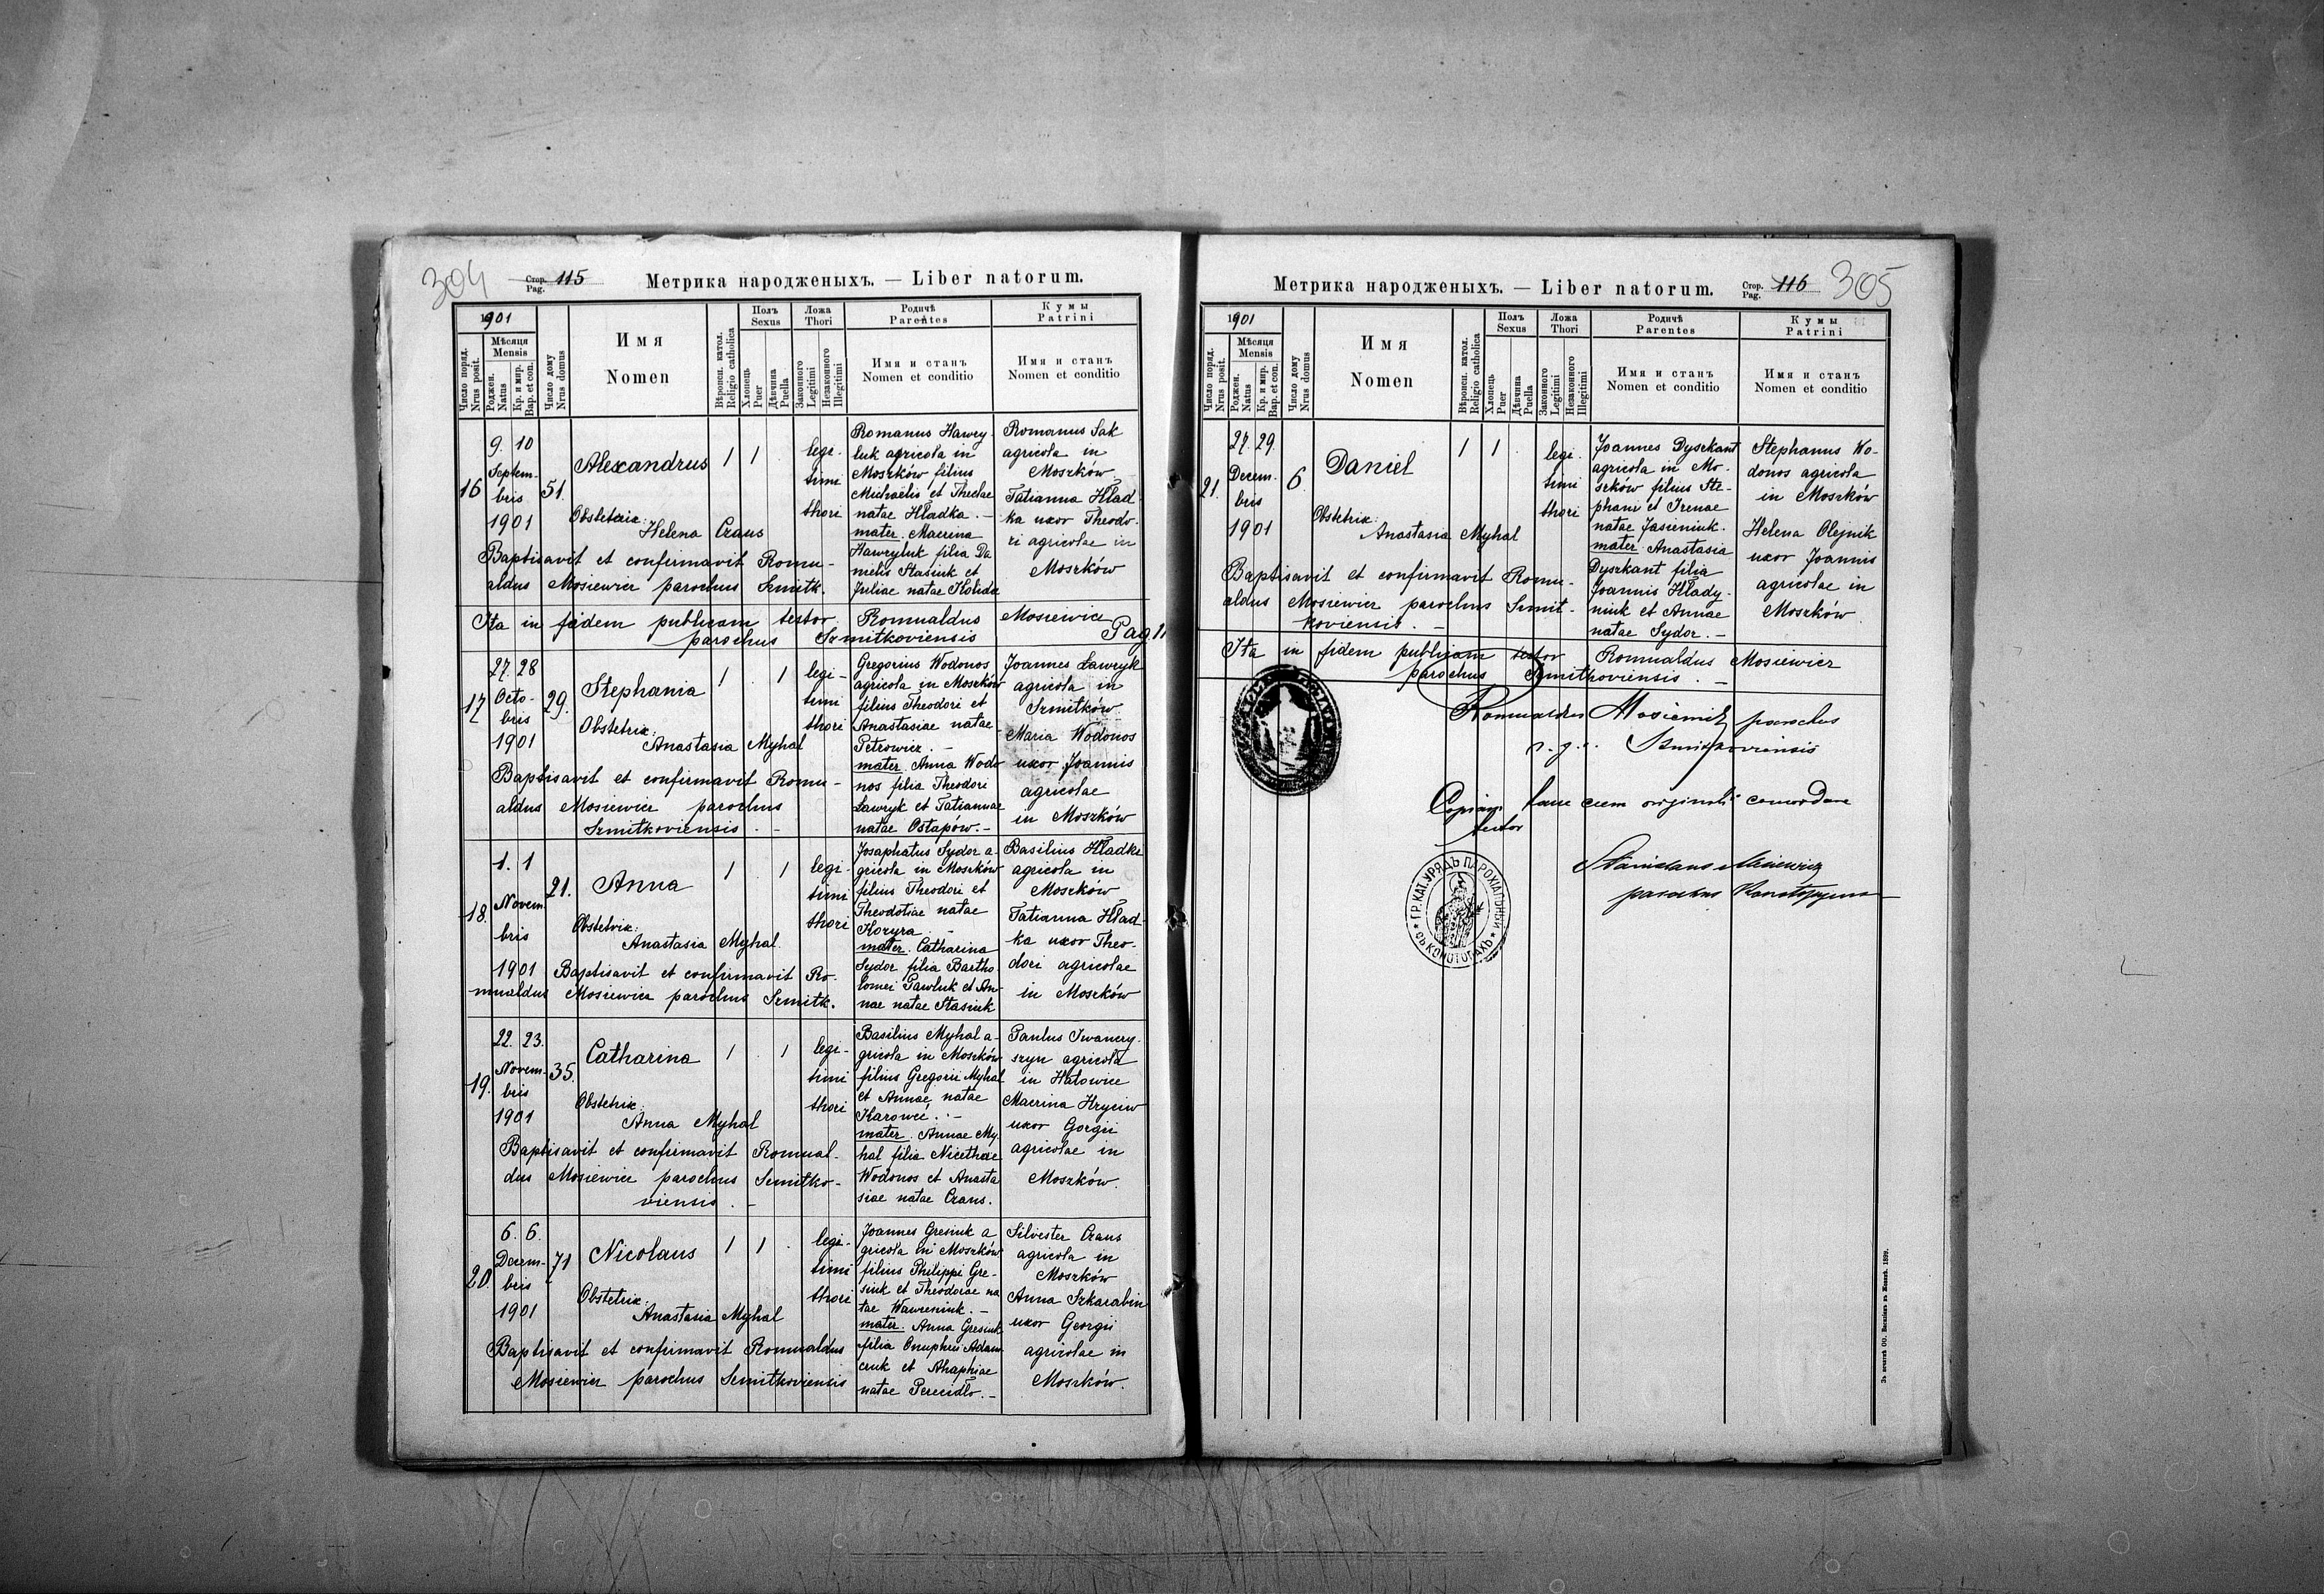 304
Стор. Pag. 115
Метрика народженыхъ. — Liber natorum.
1901
Число поряд.
Nrus posit.
Мѣсяця
Mensis
Роджен.
Natus
Кр. и мир.
Bap. et con.
Число дому
Nrus domus
Имя
Nomen
Вѣроисп. катол.
Religio catholica
Полъ
Sexus
Хлопець
Puer
Дѣвчина
Puella
Ложа
Thori
Законного
Legitimi
Незаконного
Illegitimi
Родичѣ
Parentes
Имя и станъ
Nomen et conditio
Кумы
Patrini
Имя и станъ
Nomen et conditio
16
9. 10
Septem-
bris
1901
51.
Alexandrus
1 1 .
legi-
timi
thori
Obstetrix:
Helena Czaus
Baptisavit et confirmavit Romu-
aldus Mosiewicz parochus Szmitk.
Romanus Hawry-
luk agricola in
Moszków filius
Michaëlis et Theclae
natae Hładka. —
mater. Macrina
Hawryluk filia Da
nielis Stasiuk et
Juliae natae Kolida
Romanus Sak
agricola in
Moszków
Tatianna Hład-
ka uxor Theodo-
ri agricolae in
Moszków
Ita in fidem publicam testor Romualdus Mosiewicz
parochus Szmitkoviensis
Pag. 11
17
27. 28
Octo-
bris
1901
29.
Stephania
1 . 1
legi-
timi
thori
Obstetrix:
Anastasia Myhal
Baptisavit et confirmavit Romu-
aldus Mosiewicz parochus
Szmitkoviensis. —
Gregorius Wodonos
agricola in Moszków
filius Theodori et
Anastasiae natae
Petrowicz. —
mater. Anna Wodo
nos filia Theodori
Ławryk et Tatiannae
natae Ostapów. —
Joannes Ławryk
agricola in
Szmitków
Maria Wodonos
uxor Joannis
agricolae
in Moszków
18.
1. 1
Novem
bris
1901
21.
Anna
1 . 1
legi-
timi
thori
Obstetrix:
Anastasia Myhal.
Baptisavit et confirmavit Ro-
mualdus Mosiewicz parochus Szmitk.
Josaphatus Sydor a-
gricola in Moszków
filius Theodori et
Theodotiae natae
Kozyra. —
mater. Catharina
Sydor filia Bartho
lomei Pawluk et An-
nae natae Stasiuk
Basilius Hładki
agricola in
Moszków
Tatianna Hład-
ka uxor Theo-
dori agricolae
in Moszków
19.
22. 23.
Novem-
bris
1901
35.
Catharina
1 . 1
legi-
timi
thori
Obstetrix:
Anna Myhal
Baptisavit et confirmavit Romual-
dus Mosiewicz parochus Szmitko-
viensis. —
Basilius Myhal a-
gricola in Moszków
filius Gregorii Myhal
et Annae natae
Karoweć. —
mater. Annae My
hal filia Nicethae
Wodonos et Anasta
siae natae Czaus.
Paulus Iwanczy-
szyn agricola
in Hatowice
Macrina Hryciw
uxor Gorgii
agricolae in
Moszków.
20.
6. 6.
Decem-
bris
1901
71
Nicolaus
1 1 .
legi-
timi
thori
Obstetrix:
Anastasia Myhal
Baptisavit et confirmavit Romualdus
Mosiewicz parochus Szmitkoviensis
Joannes Gresiuk a
gricola in Moszków
filius Philippi Gre-
siuk et Theodorae na
tae Wawreniuk. —
mater. Anna Gresiuk
filia Onuphrii Adam
czuk et Ahaphiae
natae Perecidlo. —
Silvester Czaus
agricola in
Moszków
Anna Szkarabin
uxor Georgii
agricolae in
Moszków.
Метрика народженыхъ. — Liber natorum.
Стор. Pag. 116
305
1901
Число поряд.
Nrus posit.
Мѣсяця
Mensis
Роджен.
Natus
Кр. и мир.
Bap. et con.
Число дому
Nrus domus
Имя
Nomen
Вѣроисп. катол.
Religio catholica
Полъ
Sexus
Хлопець
Puer
Дѣвчина
Puella
Ложа
Thori
Законного
Legitimi
Незаконного
Illegitimi
Родичѣ
Parentes
Имя и станъ
Nomen et conditio
Кумы
Patrini
Имя и станъ
Nomen et conditio
21.
27. 29.
Decem-
bris
1901
6.
Daniel
1 1 .
legi-
timi
thori
Obstetrix:
Anastasia Myhal
Baptisavit et confirmavit Romu-
aldus Mosiewicz parochus Szmit-
koviensis. —
Joannes Dyszkant
agricola in Mo-
szków filius Ste-
phani et Irenae
natae Jasieniuk.
mater. Anastasia
Dyszkant filia
Joannis Hłady-
niuk et Annae
natae Sydor. —
Stephanus Wo-
donos agricola
in Moszków
Helena Olejnik
uxor Joannis
agricolae in
Moszków.
Ita in fidem publicam testor Romualdus Mosiewicz
parochus Szmitkoviensis. —
Romualdus Mosiewicz parochus
Szmitkoviensis
Copiam hanc cum originali concordare
testor
Stanislaus Mosiewicz
parochus
ГР. КАТ. УРЯДЪ ПАРОХІАЛЬНЫЙ
ВЪ КОНОТОПАХЪ